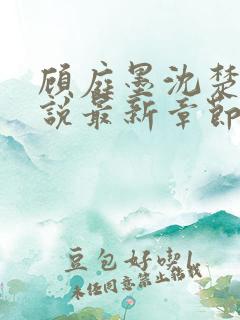 顾庭墨沈楚
说最新章节
豆包好喫
未经同意禁止转载